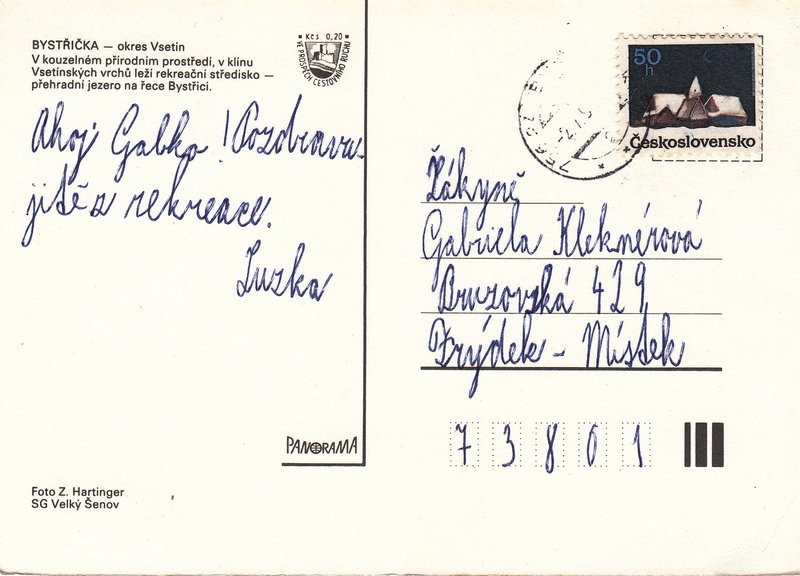 BYSTŘIČKA — okres Vsetín
V kouzelném přírodním prostředí, v klínu
Vsetínských vrchů leží rekreační středisko —
přehradní jezero na řece Bystřici.
Kčs 0,20
VE PROSPĚCH CESTOVNÍHO RUCHU
Ahoj Gabko! Pozdravu-
jitě z rekreace.
Luzka
50
h
Československo
Žákyně
Gabriela Kleknérová
Bruzovská 429
Frýdek - Místek
73801
PANORAMA
Foto Z. Hartinger
SG Velký Šenov